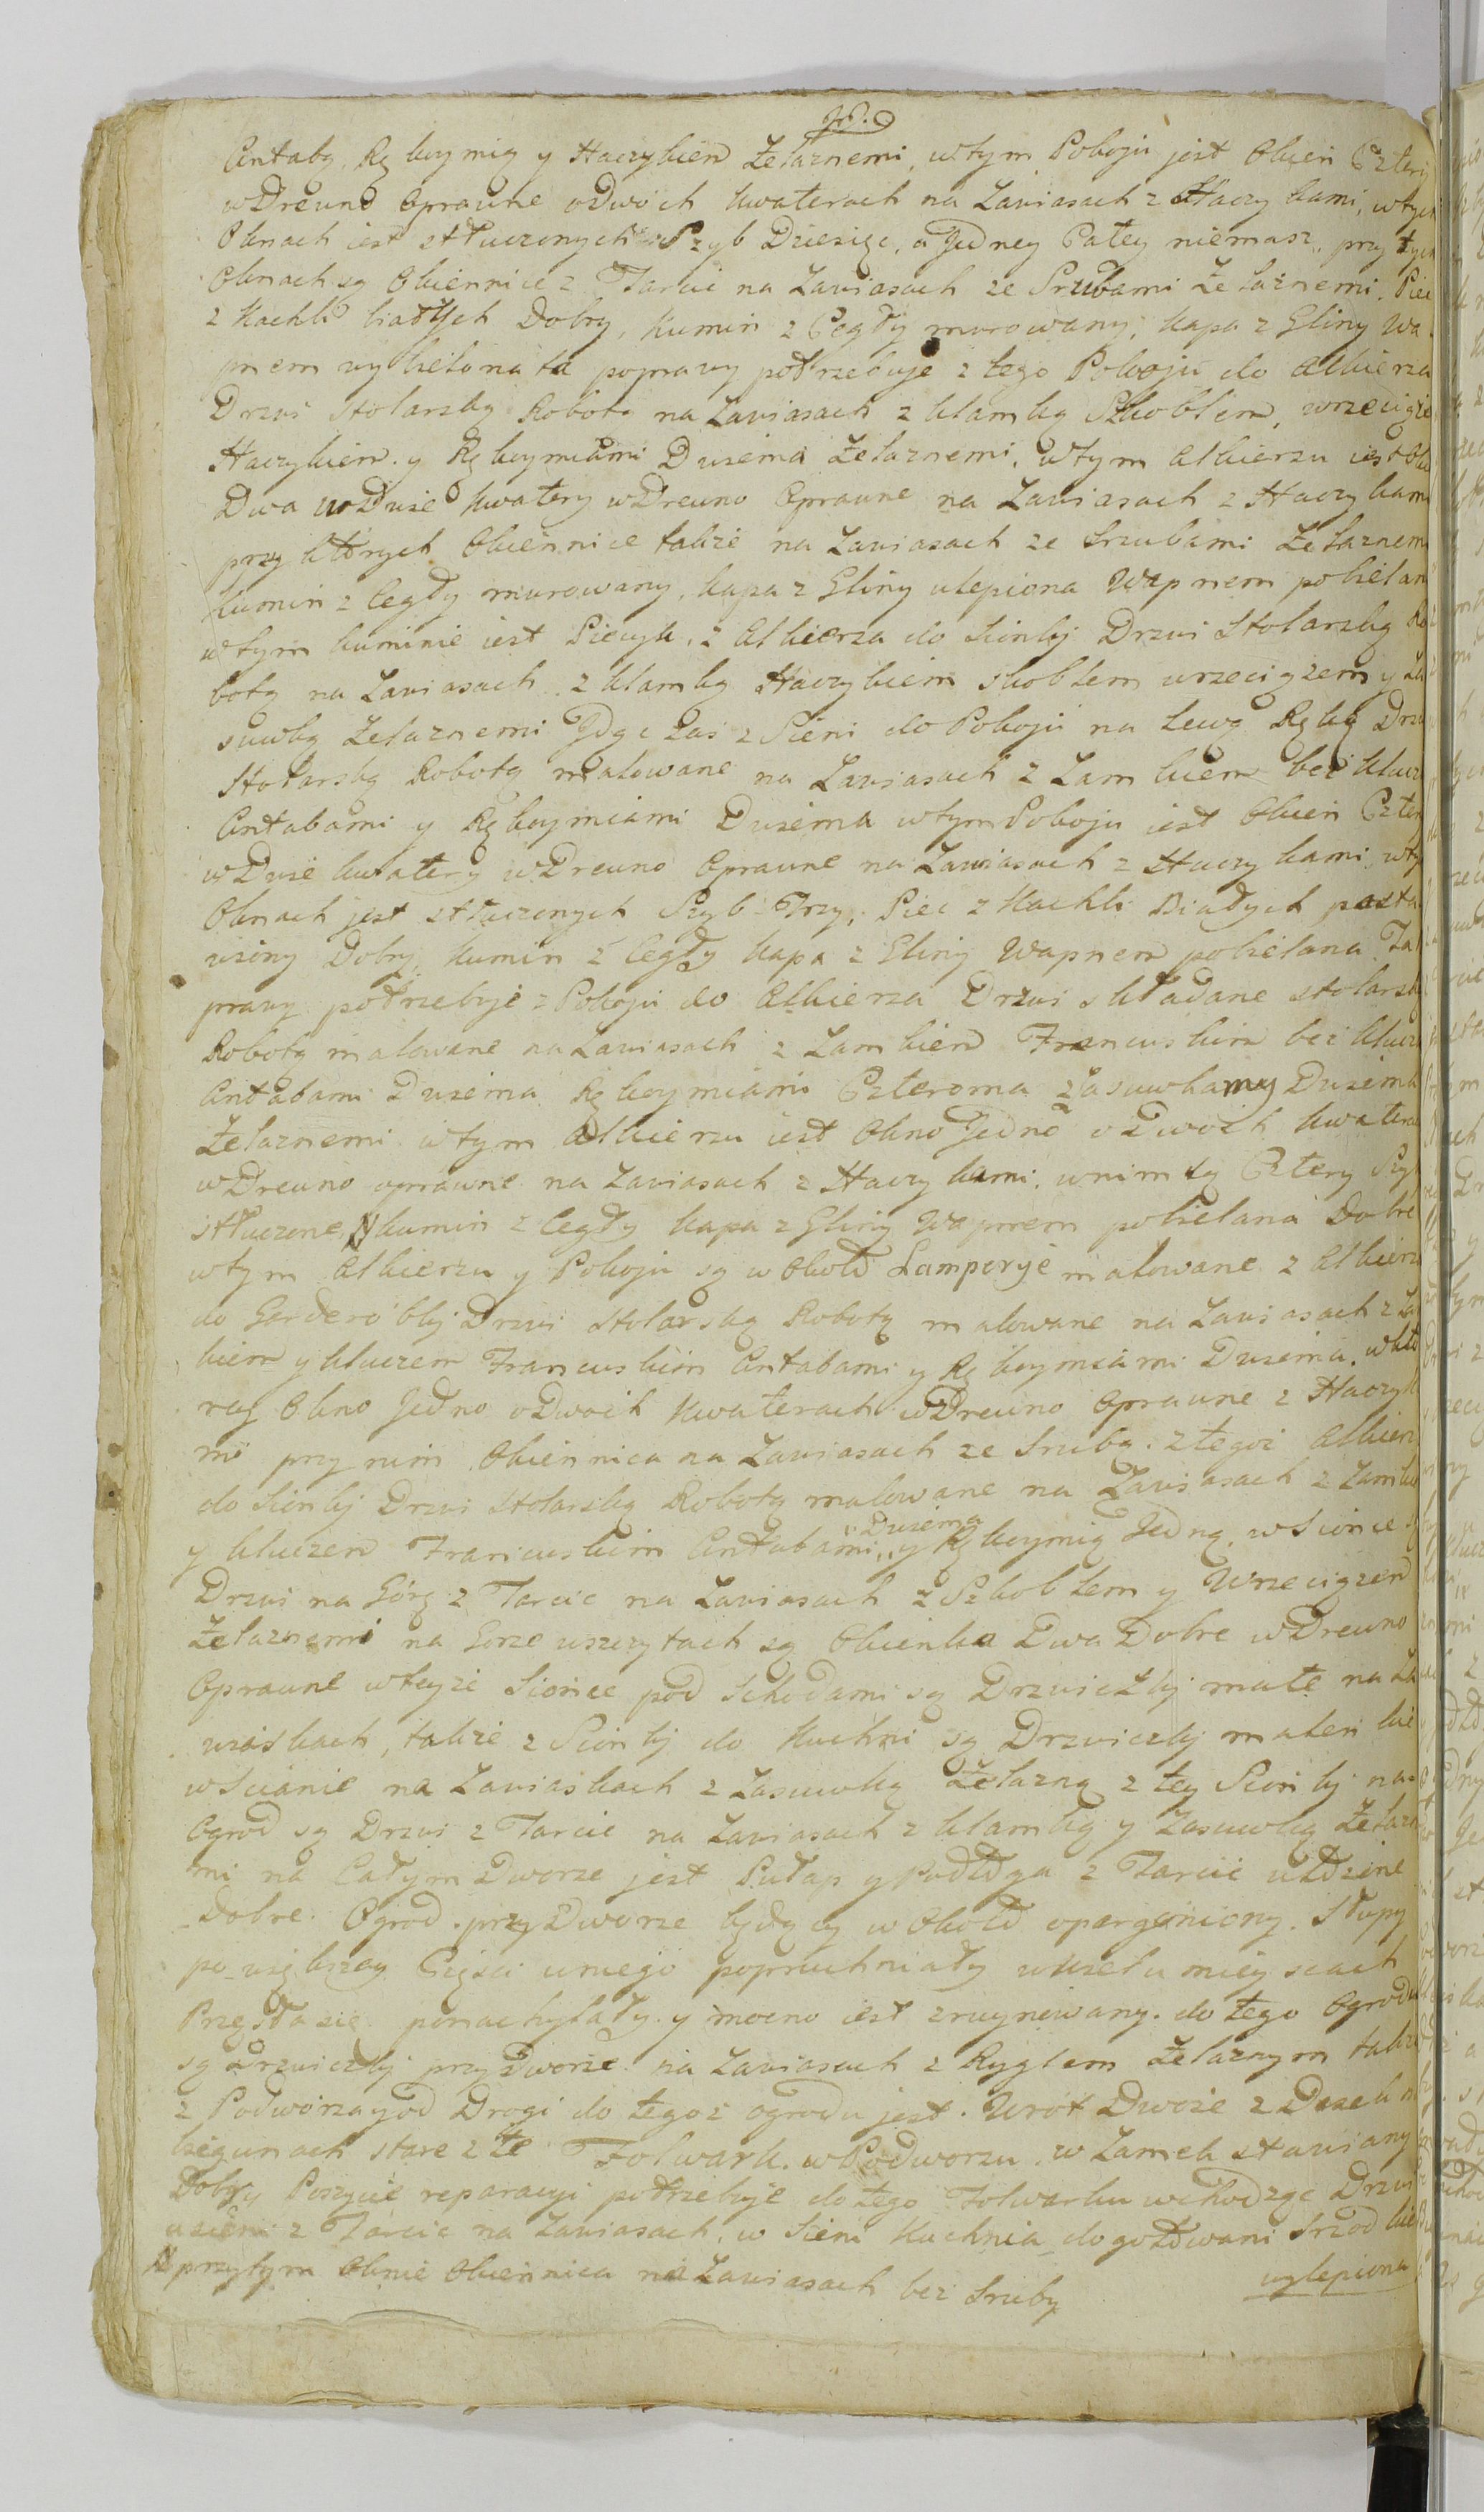 Antabą, Rękoymią y Haczykiem Żelaznemi, wtym Pokoju jest Okien Cztery
wDrewno Oprawne oDwóch kwaterach na Zawiasach z Haczykami, wtych
Oknach iest stłuczonych Szyb Dziesięć, a Jedney Całey niemasz, przy tych
Oknach są Okiennice z Tarcic na Zawiasach ze Śrubami Żelaznemi. Piec
z Kachli białych Dobry, Kumin z Cegły murowany, kapa z Gliny Wa
pnem wybielona ta poprawy potrzebuje z tego Pokoju do Alkierza
Drzwi Stolarską Robotą na Zawiasach z klamką Skoblem, wrzeciąże
Haczykiem y Rękoymiami Dwiema Żelaznemi. wtym Alkierzu iest Ok
Dwa wDwie kwatery wDrewno Oprawne na Zawiasach z Haczykam
przyktórych Okiennice także na Zawiasach ze Srzubami Żelaznem
kumin z Cegły murowany, kapa z Gliny ulepiona Wapnem pobielan
wtym kuminie iest Piecyk, z Alkierza do Sionki Drzwi Stolarską Ro
botą na Zawiasach z klamką Haczykiem skoblem wrzeciązem y Za
suwką Żelaznemi Jdąc zaś z Sieni do Pokoju na lewą Rękę Drz
Stolarską Robotą malowane na Zawiasach z Zamkiem bez klucz
Antabami y Rękoymiami Dwiema wtym Pokoju iest Okien Czter
wDwie kwatery wDrewno Oprawne na Zawiasach z Haczykami, wty
Oknach jest stłuczonych Szyb Trzy, Piec z Kachli Białych posta
wiony Dobry, Kumin z Cegły kapa z Gliny Wapnem pobielana Ta
prawy potrzebuje z Pokoju do Alkierza Drzwi składane stolarsk
Robotą malowane na Zawiasach z Zamkiem Francuskim bez klucz
Antabami Dwiema Rękoymiami Czteroma Zasuwkamy Dwiema
Żelaznemi wtym Alkierzu iest Okno Jedne o Dwóch kwatera
wDrewno oprawne na Zawiasach z Haczykami, wnim są Cztery Szy
stłuczone, kumin z Cegły kapa z Gliny Wapnem pobielana Dobre
wtym Alkierzu y Pokoju są w Około Lamperye malowane z Alkierz
do Garderobki Drzwi Stolarską Robotą malowane na Zawiasach z Za
kiem y kluczem Francuskim Antabami y Rękoymiami Dwiema, wktó
rey Okno Jedno oDwóch kwaterach wDrewno Oprawne z Haczyk
mi przy nim Okiennica na Zawiasach ze Srubą. ztegoż Alkierz
do Sionki Drzwi Stolarską Robotą malowane na Zawiasach z Zamk
y kluczem Francuskim Antabami „Dwiema„ y Rękoymią Jedną, wSionce s
Drzwi na Górę z Tarcic na Zawiasach z Skoblem y Wrzeciązem
Żelaznemi na Gorze wszczytach są Okienka Dwa Dobre wDrewno
Oprawne wteyże Sionce pod Schodami są Drzwiczki małe na Za
wiaskach, także z Sionki do Kuchni są Drzwiczki maleńkie
wScianie na Zawiaskach z Zasuwką Żelazną z tey Sionki na
Ogrod są Drzwi z Tarcic na Zawiasach z klamką y Zasuwką Żelazn
mi na Całym Dworze jest Pułap y Podłoga z Tarcic ułożone
Dobre. Ogrod przyDworze będący w Około oparganiony. Słupy
powiększey Części uniego popruchniały wwielu mieyscach
Przęsła się ponachylały y mocno iest zruynowany. do tego Ogrodu
są Drzwiczki przyDworze na Zawiasach z Ryglem Żelaznym także
z Podworza y od Drogi do tegoż ogrodu jest Wrót Dwoie z Desek n
biegunach stare złe Folwark wPodworzu w Zamek stawiany
Dobry Poszycie reparacyi potrzebuje do tego Folwarku wchodząc Drzwi
usieni z Tarcic na Zawiasach, w Sieni Kuchnia do gotowani Srzod kie
przytym Oknie Okiennica na Zawiasach bez Sruby
wylepiona